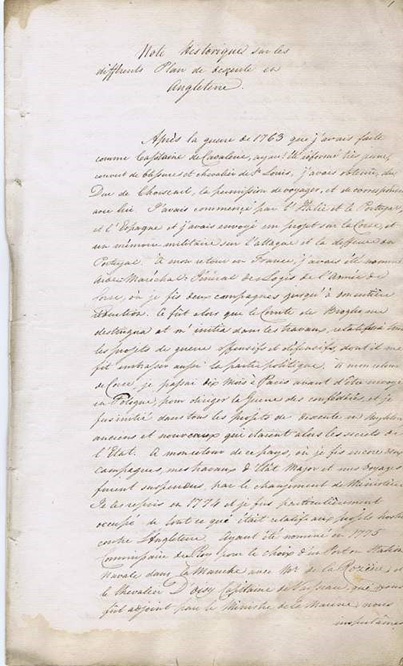 Note Historique sur les
différents Plan de descente en
Angleterre.
Après la guerre de 1763 que j'avais faite
comme Capitaine de Cavalerie, ayant été réformé très jeune,
couvert de blessures et chevalier de St Louis, j'avais obtenu, du
Duc de Choiseul, la permission de voyager, et de correspondre
avec lui J'avais commencé par l'Italie et le Portugal
et l'Espagne et j'avais envoyé un projet sur la Corse, et
un mémoire militaire sur l'attaque et la défense du
Portugal. à mon retour en France, j'avais été nommé
aide Maréchal Général des Logis de l'Armée de
Corse, où je fis deux campagnes jusqu'à son entière
réduction. Ce fut alors que le Comte de Broglie me
distingua et m'initia dans les travaux, relatifs à tous
les projets de guerre offensifs et défensifs, dont il me
fit embrasser aussi la partie politique. à mon retour
de Corse, je passai dix mois à Paris avant d'être envoyé
en Pologne pour diriger la Guerre des confédérés et je
fus initié dans tous les projets de descente en Angleterre
anciens et nouveaux qui étaient alors les secrets de
l'Etat. A mon retour de ce pays, où je fis encore deux
campagnes, mes travaux d'Etat Major et mes voyages
furent suspendus, par le changement de Ministère
Je les repris en 1774 et je fus particulièrement
occupé de tout ce qui était relatif aux projets
contre l'Angleterre. Ayant été nommé en 1775
Commissaire du Roi pour le choix d'un Port en Station
Navale dans la Manche avec Mr. de la Rozière, et
le Chevalier D'oisy Capitaine de Vaisseau que nous
fut adjoint par le Ministre de la Marine, nous